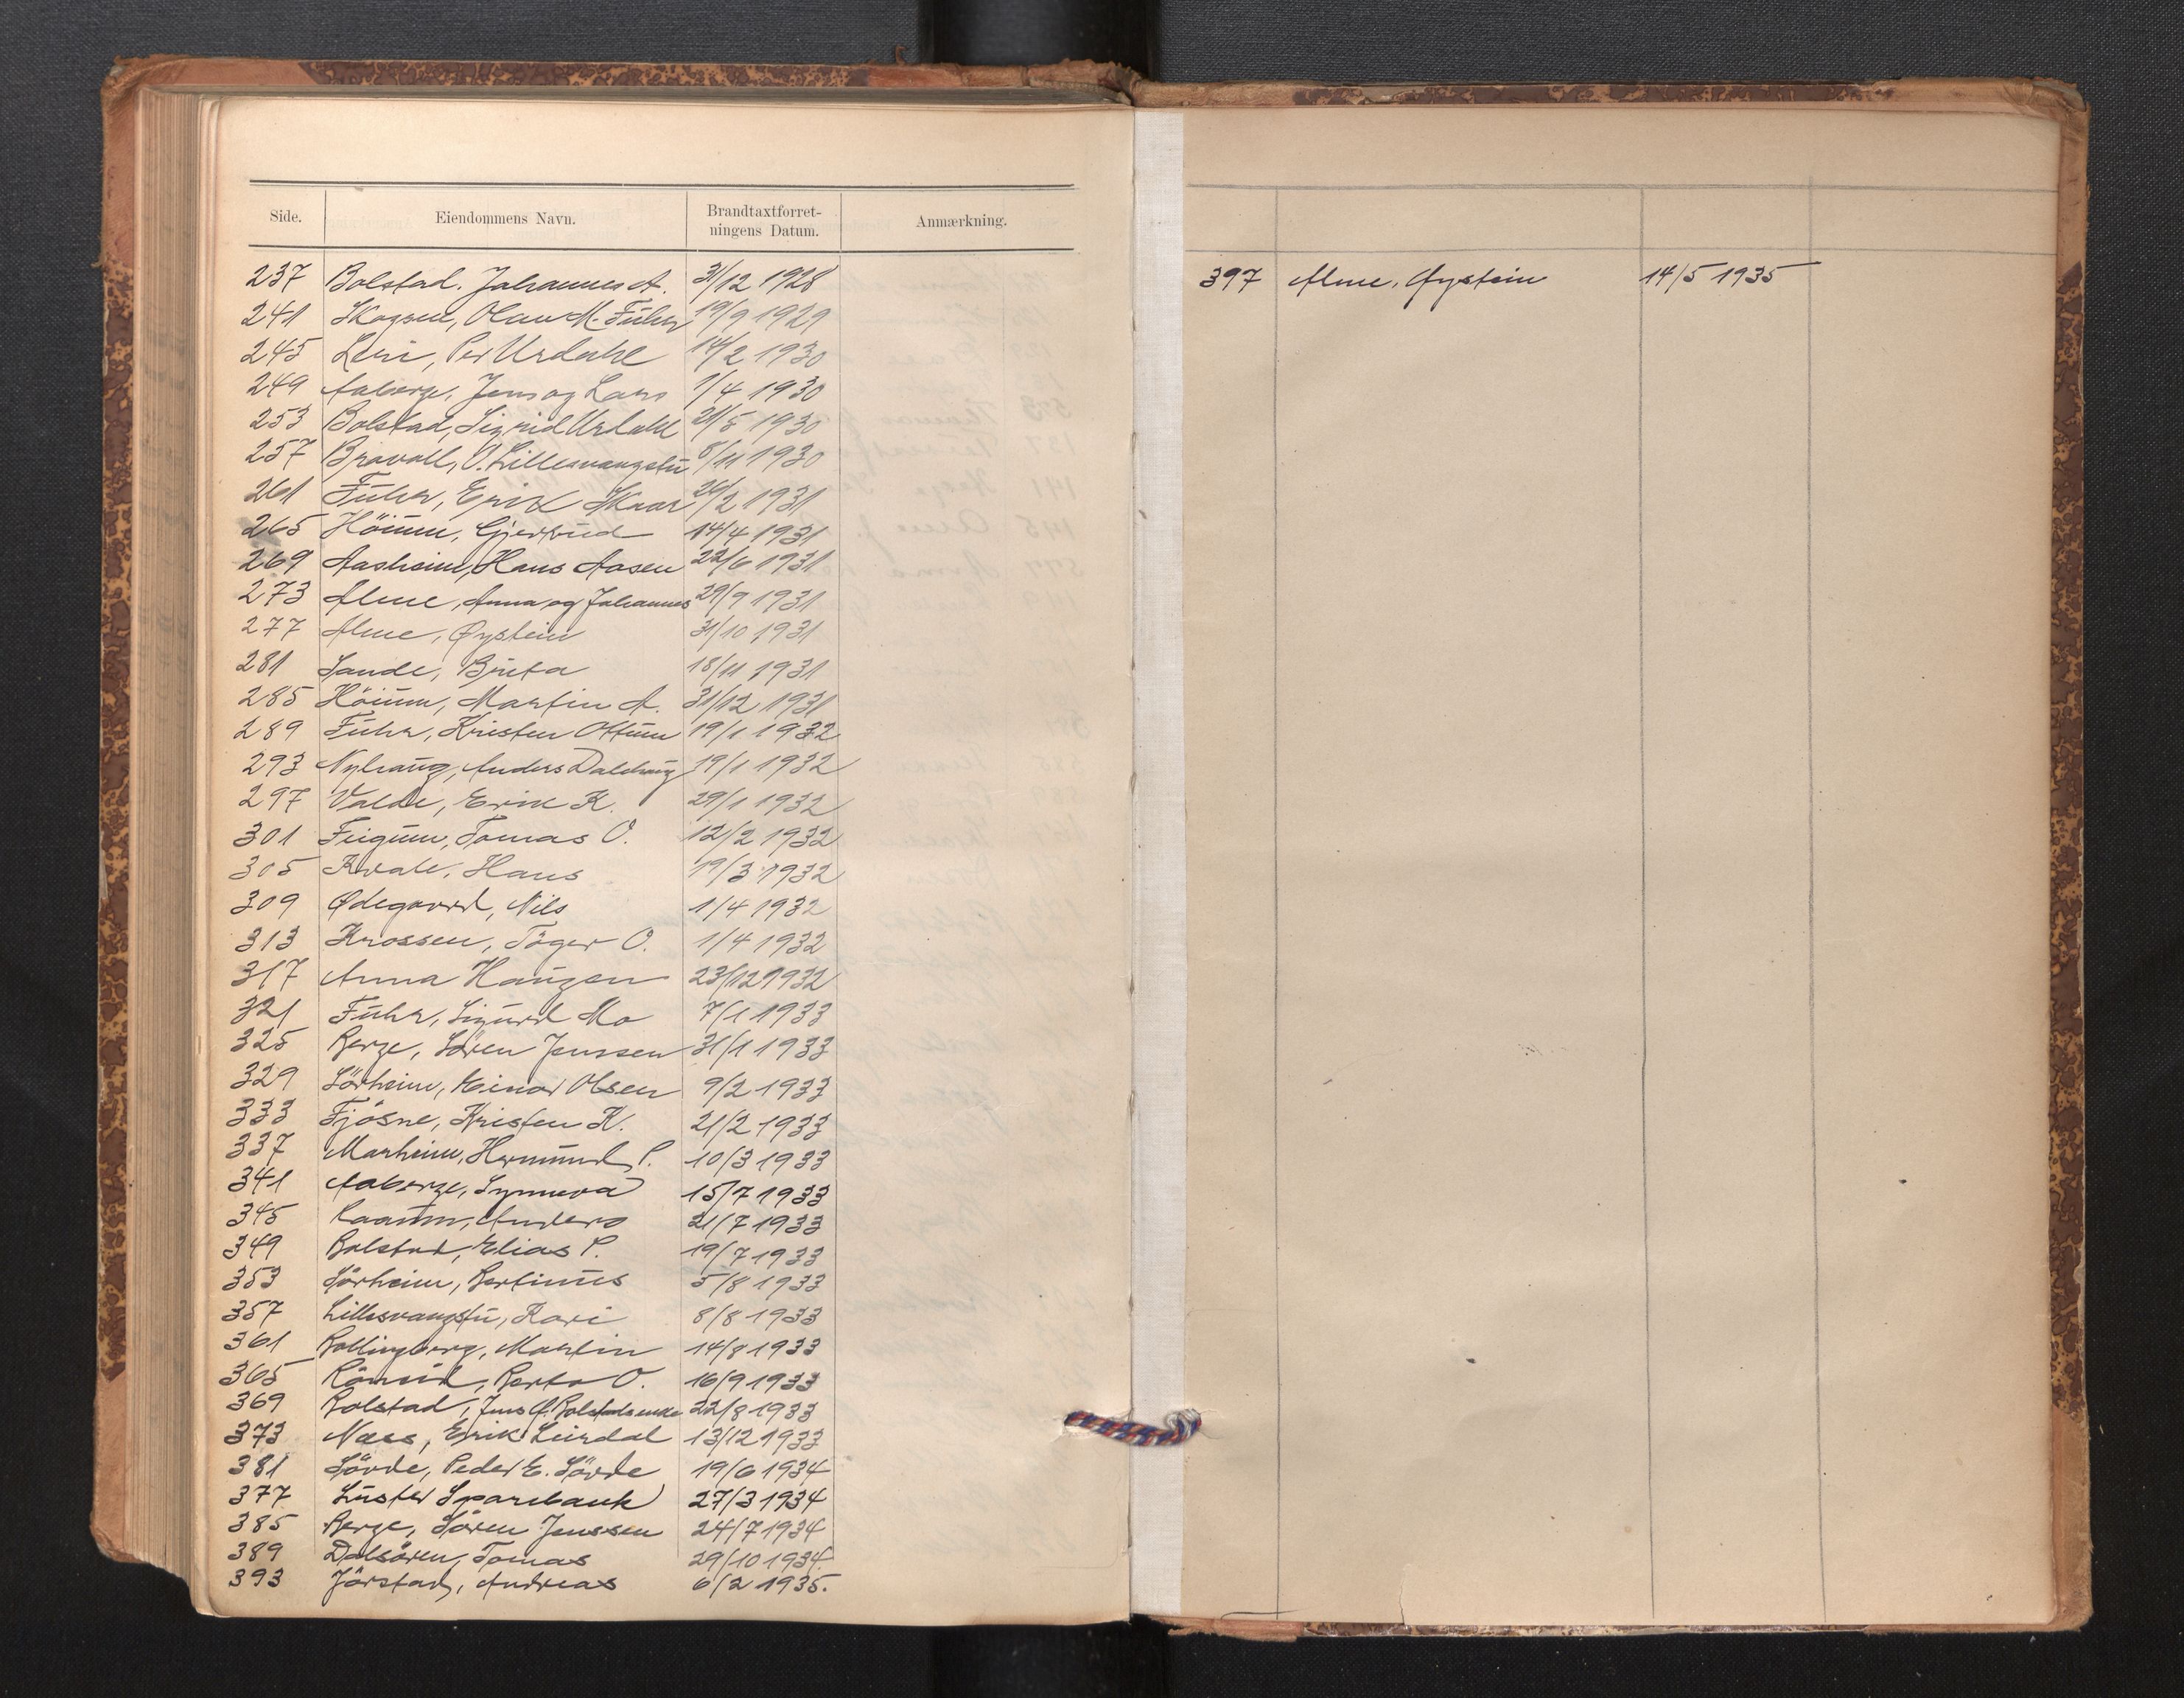 Side. Eiendommens Navn. Brandtaxtforret-ningens Datum. Anmærkning.
237 Bolstad. Johannes A. 31/12 1928
241 Skogen, Olav M. Fuhr 19/9 1929
245 Leri, Per Urdahl 14/2 1930
249 Aaberge, Jens og Lars 1/4 1930
253 Bolstad, Sigrid Urdahl 21/5 1930
257 Bravoll, O. Lillesvangstu 8/11 1930
261 Fuhr, Erik Skaar 26/2 1931
265 Höium, Gjertrud 14/4 1931
269 Aasheim, Hans Aasen 22/6 1931
273 Alme, Anna og Johannes 29/9 1931
277 Alme, Øystein 31/10 1931
281 Sande, Brita 18/11 1931
285 Höium, Martin A. 31/12 1931
289 Fuhr, Kristen Ottum 19/1 1932
293 Nyhaug, Anders Dalehaug 19/1 1932
297 Valde, Erik K. 29/1 1932
301 Feigum, Tomas O. 12/2 1932
305 Kvale, Hans 19/3 1932
309 Ødegaard, Nils 1/4 1932
313 Krossen, Töger O. 1/4 1932
317 Anna Haugen 23/12 1932
321 Fuhr, Sigurd Mo 7/1 1933
325 Berge, Sören Jenssen 31/1 1933
329 Sörheim, Einar Olsen 9/2 1933
333 Fjösne, Kristen K. 21/2 1933
337 Marheim, Hermund P. 10/3 1933
341 Aaberge, Synneva 15/7 1933
345 Raaum, Anders 21/7 1933
349 Bolstad, Elias P. 19/7 1933
353 Sörheim, Bertinus 5/8 1933
357 Lillesvangstu, Kari 8/8 1933
361 Kollingberg, Martin 14/8 1933
365 Röneid, Berta O. 16/9 1933
369 Bolstad, Jens 22/8 1933
373 Næss, Erik Leirdal 13/12 1933
381 Sövde, Peder E. Sövde 19/6 1934
377 Luster Sparebank 27/3 1934
385 Berge, Sören Jenssen 24/7 1934
389 Dalsören, Tomas 29/10 1934.
393 Jörstad, Andreas 6/2 1935.
397 Alme, Øystein 14/5 1935